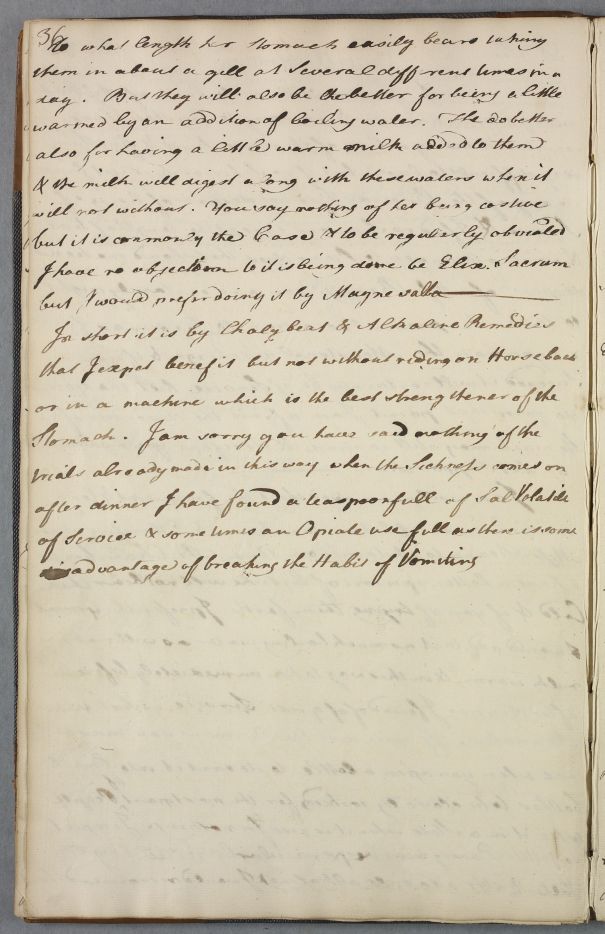 36
to what length her stomach easily bears taking
them in about a gill at several different times in a
day. But they will also be the better for being a little
warmed by an addition of boiling water. She do better
also for having a little warm milk added to them
& the milk will digest along with these waters when it
will not without. You say nothing of her being costive
but it is commonly the Case & to be regularly obviated
I have no objection to it is being done be Elix. Sacrum
but I would prefer doing it by Magnesalba
In short it is by Chalybeat & Alkaline Remedies
that I expet benefit but not without riding on Horseback
or in a machine which is the best strengthener of the
Stomach. I am sorry you have said nothing of the
trials already made in this way when the Sickness comes on
after dinner I have found a teaspoonfull of Sal Volatile
of Service & sometimes an Opiate usefull as there is some
advantage of breaking the Habit of Vomiting